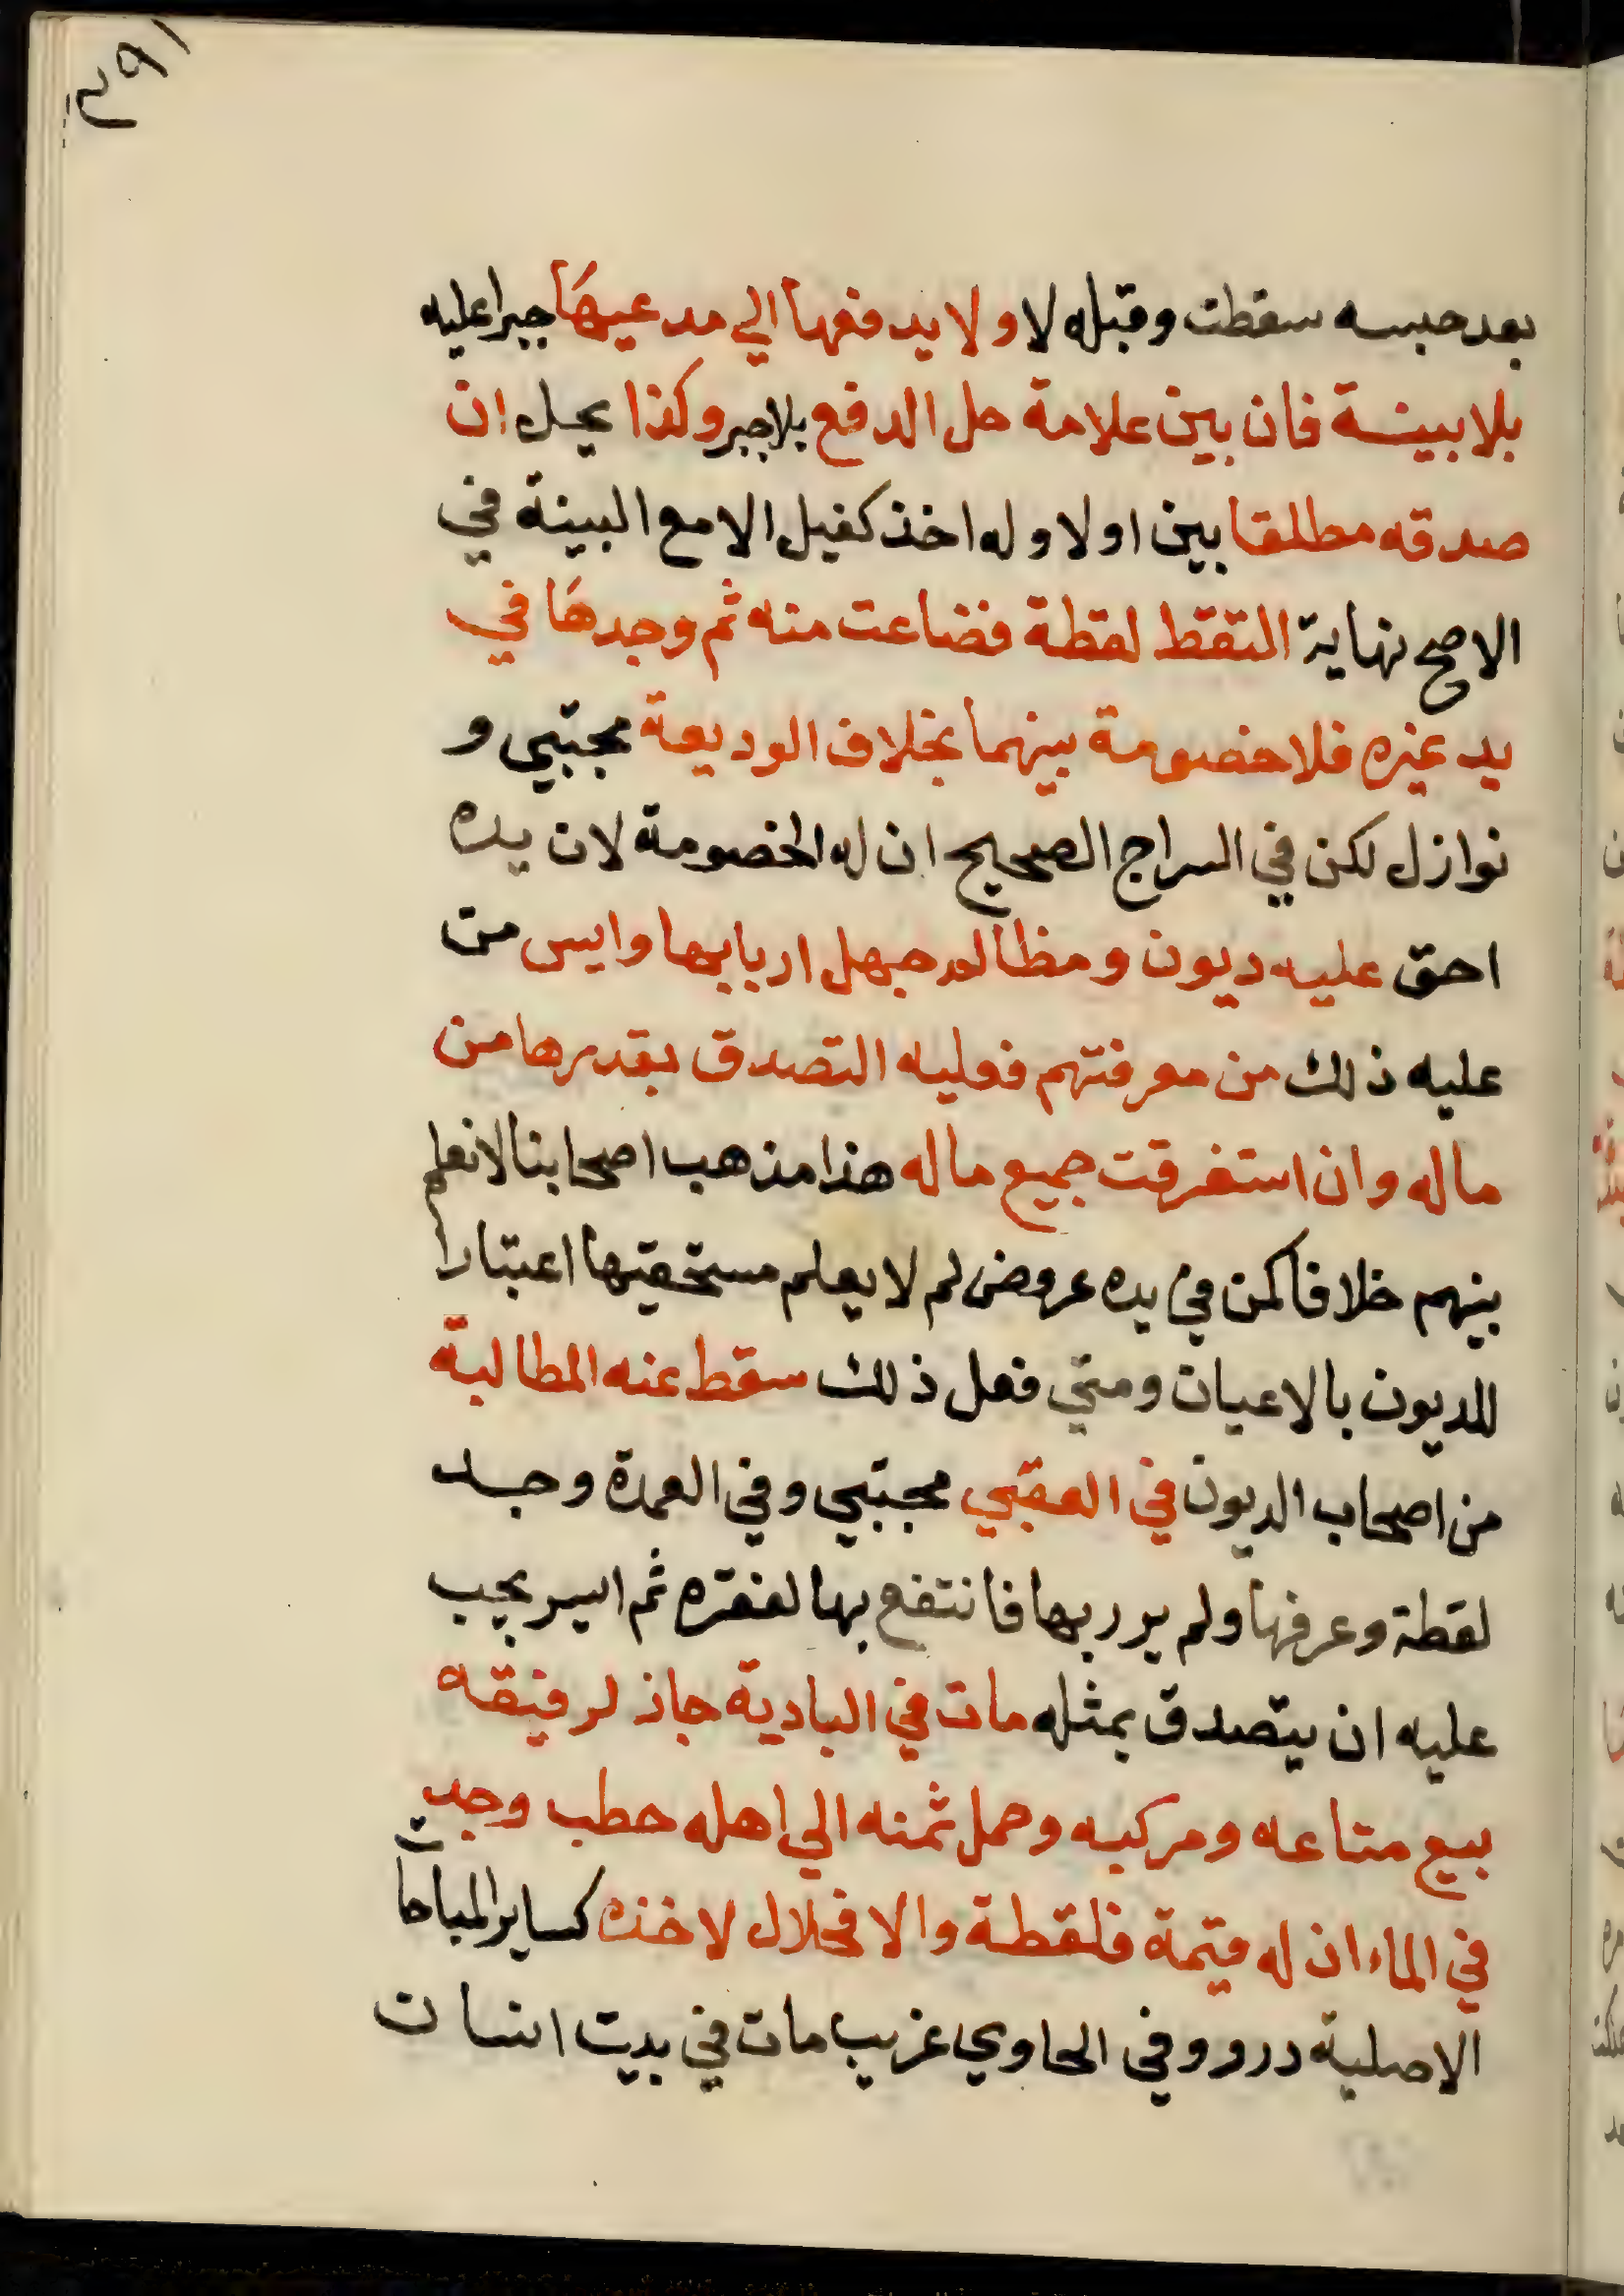 ٢٩١
بعد حبسه سقطت وقبله لا ولا يدفعها الي مدعيها جبرا عليه
بلا بينة فان بين علامة حل الدفع بلا جبر وكذا يحل ان
صدقه مطلقا بين او لا وله اخذ كفيل الا مع البينة في
الاصح نهاية التقط لقطة فضاعت منه ثم وجدها في
يد غيره فلا خصومة بينهما بخلاف الوديعة مجتبي و
نوازل لكن في السراج الصحيح ان له الخصومة لان يده
احق عليه ديون ومظالم جهل اربابها وايس من
عليه ذلك من معرفتهم فعليه التصدق بقدرها من
ماله وان استغرقت جميع ماله هذا مذهب اصحابنا لا نعلم
بينهم خلافا كمن في يده عروض لم لا يعلم مستحقيها اعتبارا
للديون بالاعيان ومتي فعل ذلك سقط عنه المطالبة
من اصحاب الديون في العقبي مجتبي وفي العمدة وجد
لقطة وعرفها ولم ير ربها فانتفع بها لفقره ثم ايسر يجب
عليه ان يتصدق بمثله مات في البادية جاز لرفيقه
بيع متاعه ومركبه وحمل ثمنه الي اهله حطب وجد
في الماء ان له قيمة فلقطة والا فحلال لاخذه كساير المباحات
الاصلية درر وفي الحاوي غريب مات في بيت انسان